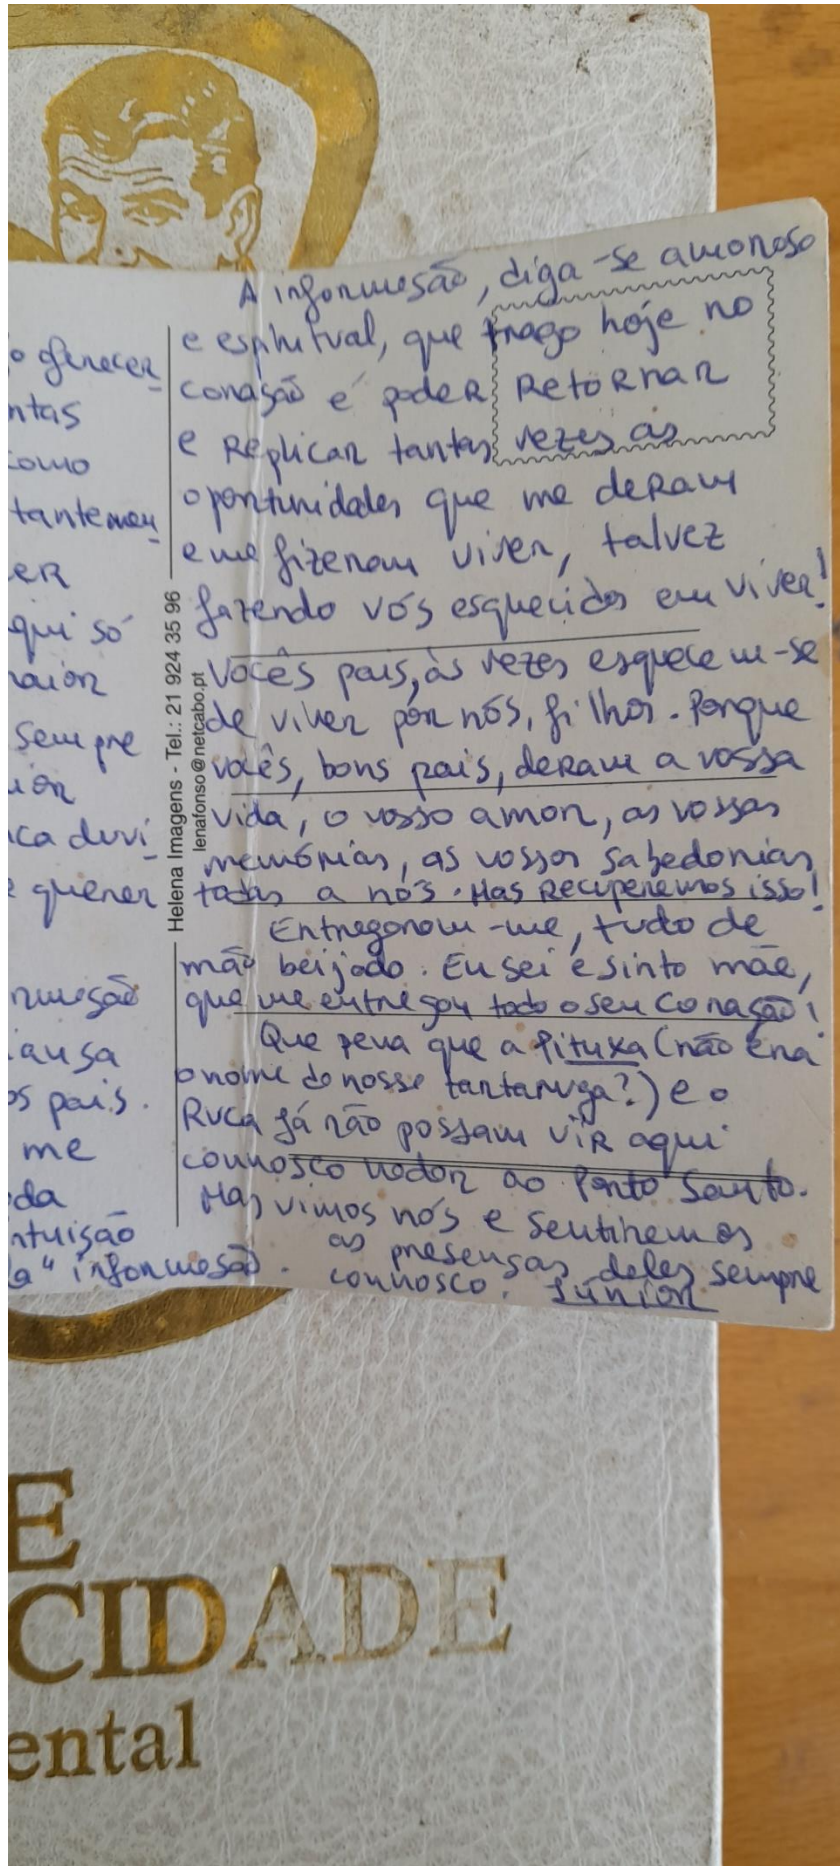 o oferecer
ntas
como
tantemen
ER
qui só
maior
sempre
ión
ca devi
e querer
rmação
ausa
os pais.
me
da
ntuição
a" informasão.
Helena Imagens - Tel.: 21 924 35 96
lenafonso@netcabo.pt
A informasão, diga-se amoroso
e espiritual, que trago hoje no
corasão é poder Retornar
e Replicar tantas vezes as
oportunidades que me deram
e me fizeram viver, talvez
fazendo vós esquecidos em viver!
Vocês pais, às vezes esquecem-se
de viver por nós, filhos. Porque
vocês, bons pais, deram a vossa
vida, o vosso amor, as vossas
memórias, as vossas sabedorias
todas a nós. Mas Recuperemos isso!
Entregaram-me, tudo de
mão beijado. Eu sei e sinto mãe,
que me entregou todo o seu corasão!
Que pena que a Pituxa (não era
o nome da nossa tartaruga?) e o
Ruca já não possam vir aqui
connosco nadar ao Porto Santo.
Mas vimos nós e sentiremos
as presensas deles sempre
connosco. Júnior
E
CIDADE
ental